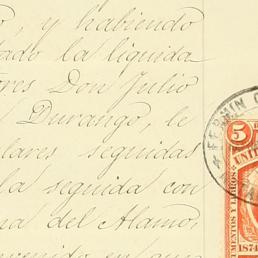 o, y habiendo
tado la liquida
ores Don Julio
Durango, le
lares seguidas
la seguida con
na del Alamo,
FERMIN
5
UNIT
UMENTOS Y LIBROS
1874